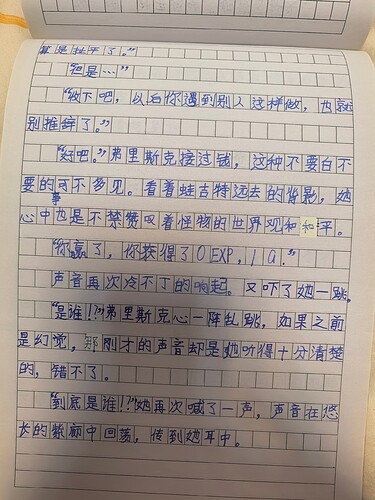 算是扯平了。”
“但是…”
“收下吧，以后你遇到别人这样做，也就
别推辞了。”
“好吧。”弗里斯克接过钱，这种不要白不
要的可不多见。看着蛙吉特远去的背影，她
心中事也是不禁赞叹着怪物的世界观和和平。
“你赢了，你获得了0EXP，1G.”
声音再次冷不丁的响起。又吓了她一跳。
“是谁！?”弗里斯克心一阵乱跳，如果之前
是幻觉，那刚才的声音却是她听得十分清楚
的，错不了。
“到底是谁！!”她再次喊了一声，声音在悠
长的紫廊中回荡，传到她耳中。